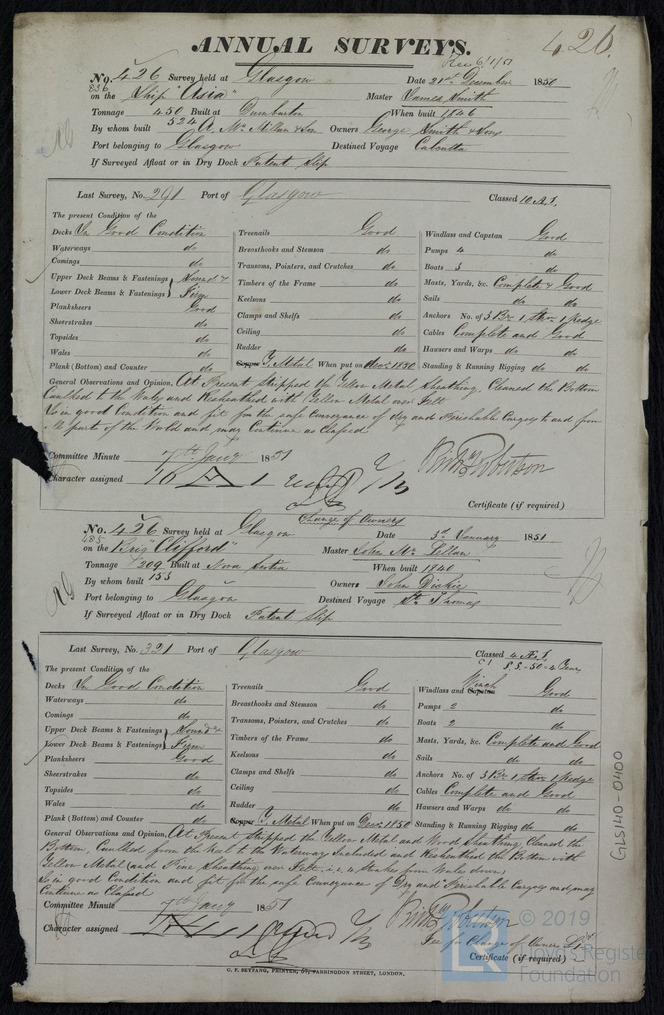 ANNUAL SURVEYS.
426.
Rec 6/1/51
No. 426 Survey held at Glasgow Date 21st December 1850
836 on the Ship "Asia" Master James Smith
Tonnage 450 Built at Dumbarton When built 1846
By whom built 524 A. Mc Millan & Son Owners George Smith & Sons
Port belonging to Glasgow Destined Voyage Calcutta
If Surveyed Afloat or in Dry Dock Patent Slip
Last Survey, No. 291 Port of Glasgow Classed 10 A 1,
The present Condition of the
Decks In Good Condition
Waterways do
Comings do
Upper Deck Beams & Fastenings } Sound &
Lower Deck Beams & Fastenings } Firm
Planksheers Good
Sheerstrakes do
Topsides do
Wales do
Plank (Bottom) and Counter do
Treenails Good
Breasthooks and Stemson do
Transoms, Pointers, and Crutches do
Timbers of the Frame do
Keelsons do
Clamps and Shelfs do
Ceiling do
Rudder do
Copper Y. Metal When put on Decr. 1850
Windlass and Capstan Good
Pumps 4 do
Boats 3 do
Masts, Yards, &c. Complete & Good
Sails do do
Anchors No. of 3 Br. 1 Strm 1 Kedge
Cables Complete and Good
Hawsers and Warps do do
Standing & Running Rigging do do
General Observations and Opinion, At Present stripped the Yellow Metal Sheathing, Cleaned the Bottom
Caulked to the Wales and Resheathed with Yellow Metal over Felt
Is in good Condition and fit for the safe Conveyance of dry and Perishable Cargoes to and from
All parts of the World and may Continue as Classed.
Committee Minute 7th Jany 1851
Character assigned 10 A 1
Robertson
Certificate (if required)
Change of Owners
No. 426 Survey held at Glasgow Date 3d January 1851
485 on the Brig "Clifford" Master John Mc Lellan
Tonnage 209 Built at Nova Scotia When built 1840
By whom built 153 Owners John Dickie
Port belonging to Glasgow Destined Voyage St. Thomas
If Surveyed Afloat or in Dry Dock Patent Slip
Last Survey, No. 321 Port of Glasgow Classed 4 Æ 1
The present Condition of the
Decks In Good Condition
Waterways do
Comings do
Upper Deck Beams & Fastenings } Sound &
Lower Deck Beams & Fastenings } Firm
Planksheers Good
Sheerstrakes do
Topsides do
Wales do
Plank (Bottom) and Counter do
Treenails Good
Breasthooks and Stemson do
Transoms, Pointers, and Crutches do
Timbers of the Frame do
Keelsons do
Clamps and Shelfs do
Ceiling do
Rudder do
Copper Y. Metal When put on Decr. 1850
Winch
Windlass and Capstan Good
Pumps 2 do
Boats 2 do
Masts, Yards, &c. Complete and Good
Sails do do
Anchors No. of 3 Br. 1 Strm 1 Kedge
Cables Complete and Good
Hawsers and Warps do do
Standing & Running Rigging do do
General Observations and Opinion, At Present stripped the Yellow Metal and Wood Sheathing, Cleaned the
Bottom, Caulked from the Keel to the Waterway Included and Resheathed the Bottom with
Yellow Metal (and Pine Sheathing over Felt, strakes from Wales down)
Is in good Condition and fit for the safe Conveyance of Dry and Perishable Cargoes and may
Continue as Classed
Committee Minute 7th Jany 1851
Character assigned
Robertson
Fee for Change of Owners
Certificate (if required)
C. F. SEYFANG, PRINTER, 57, FARRINGDON STREET, LONDON.
GLS140-0400
© 2019
Lloyd's Register
Foundation
LR